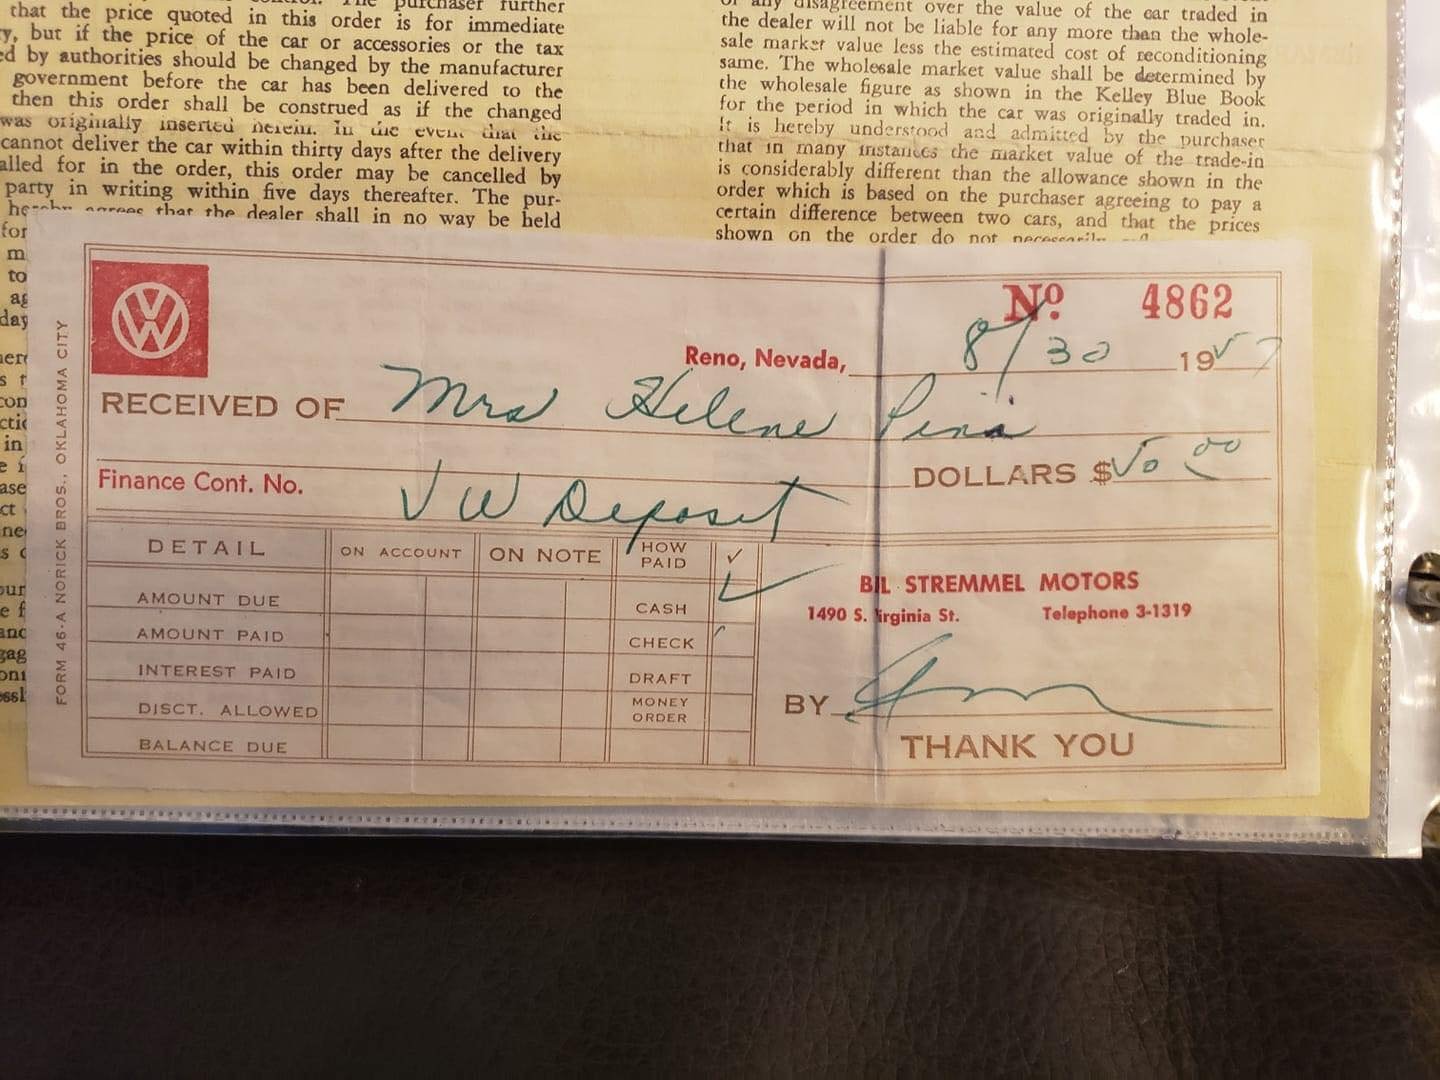 that the price quoted in this order is for immediate
y, but if the price of the car or accessories or the tax
ed by authorities should be changed by the manufacturer
government before the car has been delivered to the
then this order shall be construed as if the changed
was originally inserted herein. In the event that the
cannot deliver the car within thirty days after the delivery
alled for in the order, this order may be cancelled by
party in writing within five days thereafter. The pur-
hereby agrees that the dealer shall in no way be held
for
of any disagreement over the value of the car traded in
the dealer will not be liable for any more than the whole-
sale market value less the estimated cost of reconditioning
same. The wholesale market value shall be determined by
the wholesale figure as shown in the Kelley Blue Book
for the period in which the car was originally traded in.
It is hereby understood and admitted by the purchaser
that in many instances the market value of the trade-in
is considerably different than the allowance shown in the
order which is based on the purchaser agreeing to pay a
certain difference between two cars, and that the prices
shown on the order do not necessarily
VW
Nº 4862
Reno, Nevada, 8/30 1957
RECEIVED OF Mrs Helene Pina
DOLLARS $50 00
Finance Cont. No. VW Deposit
DETAIL ON ACCOUNT ON NOTE HOW PAID ✓
AMOUNT DUE CASH ✓
AMOUNT PAID CHECK
INTEREST PAID DRAFT
DISCT. ALLOWED MONEY ORDER
BALANCE DUE
BIL STREMMEL MOTORS
1490 S. Virginia St. Telephone 3-1319
BY
THANK YOU
FORM 46-A NORICK BROS., OKLAHOMA CITY